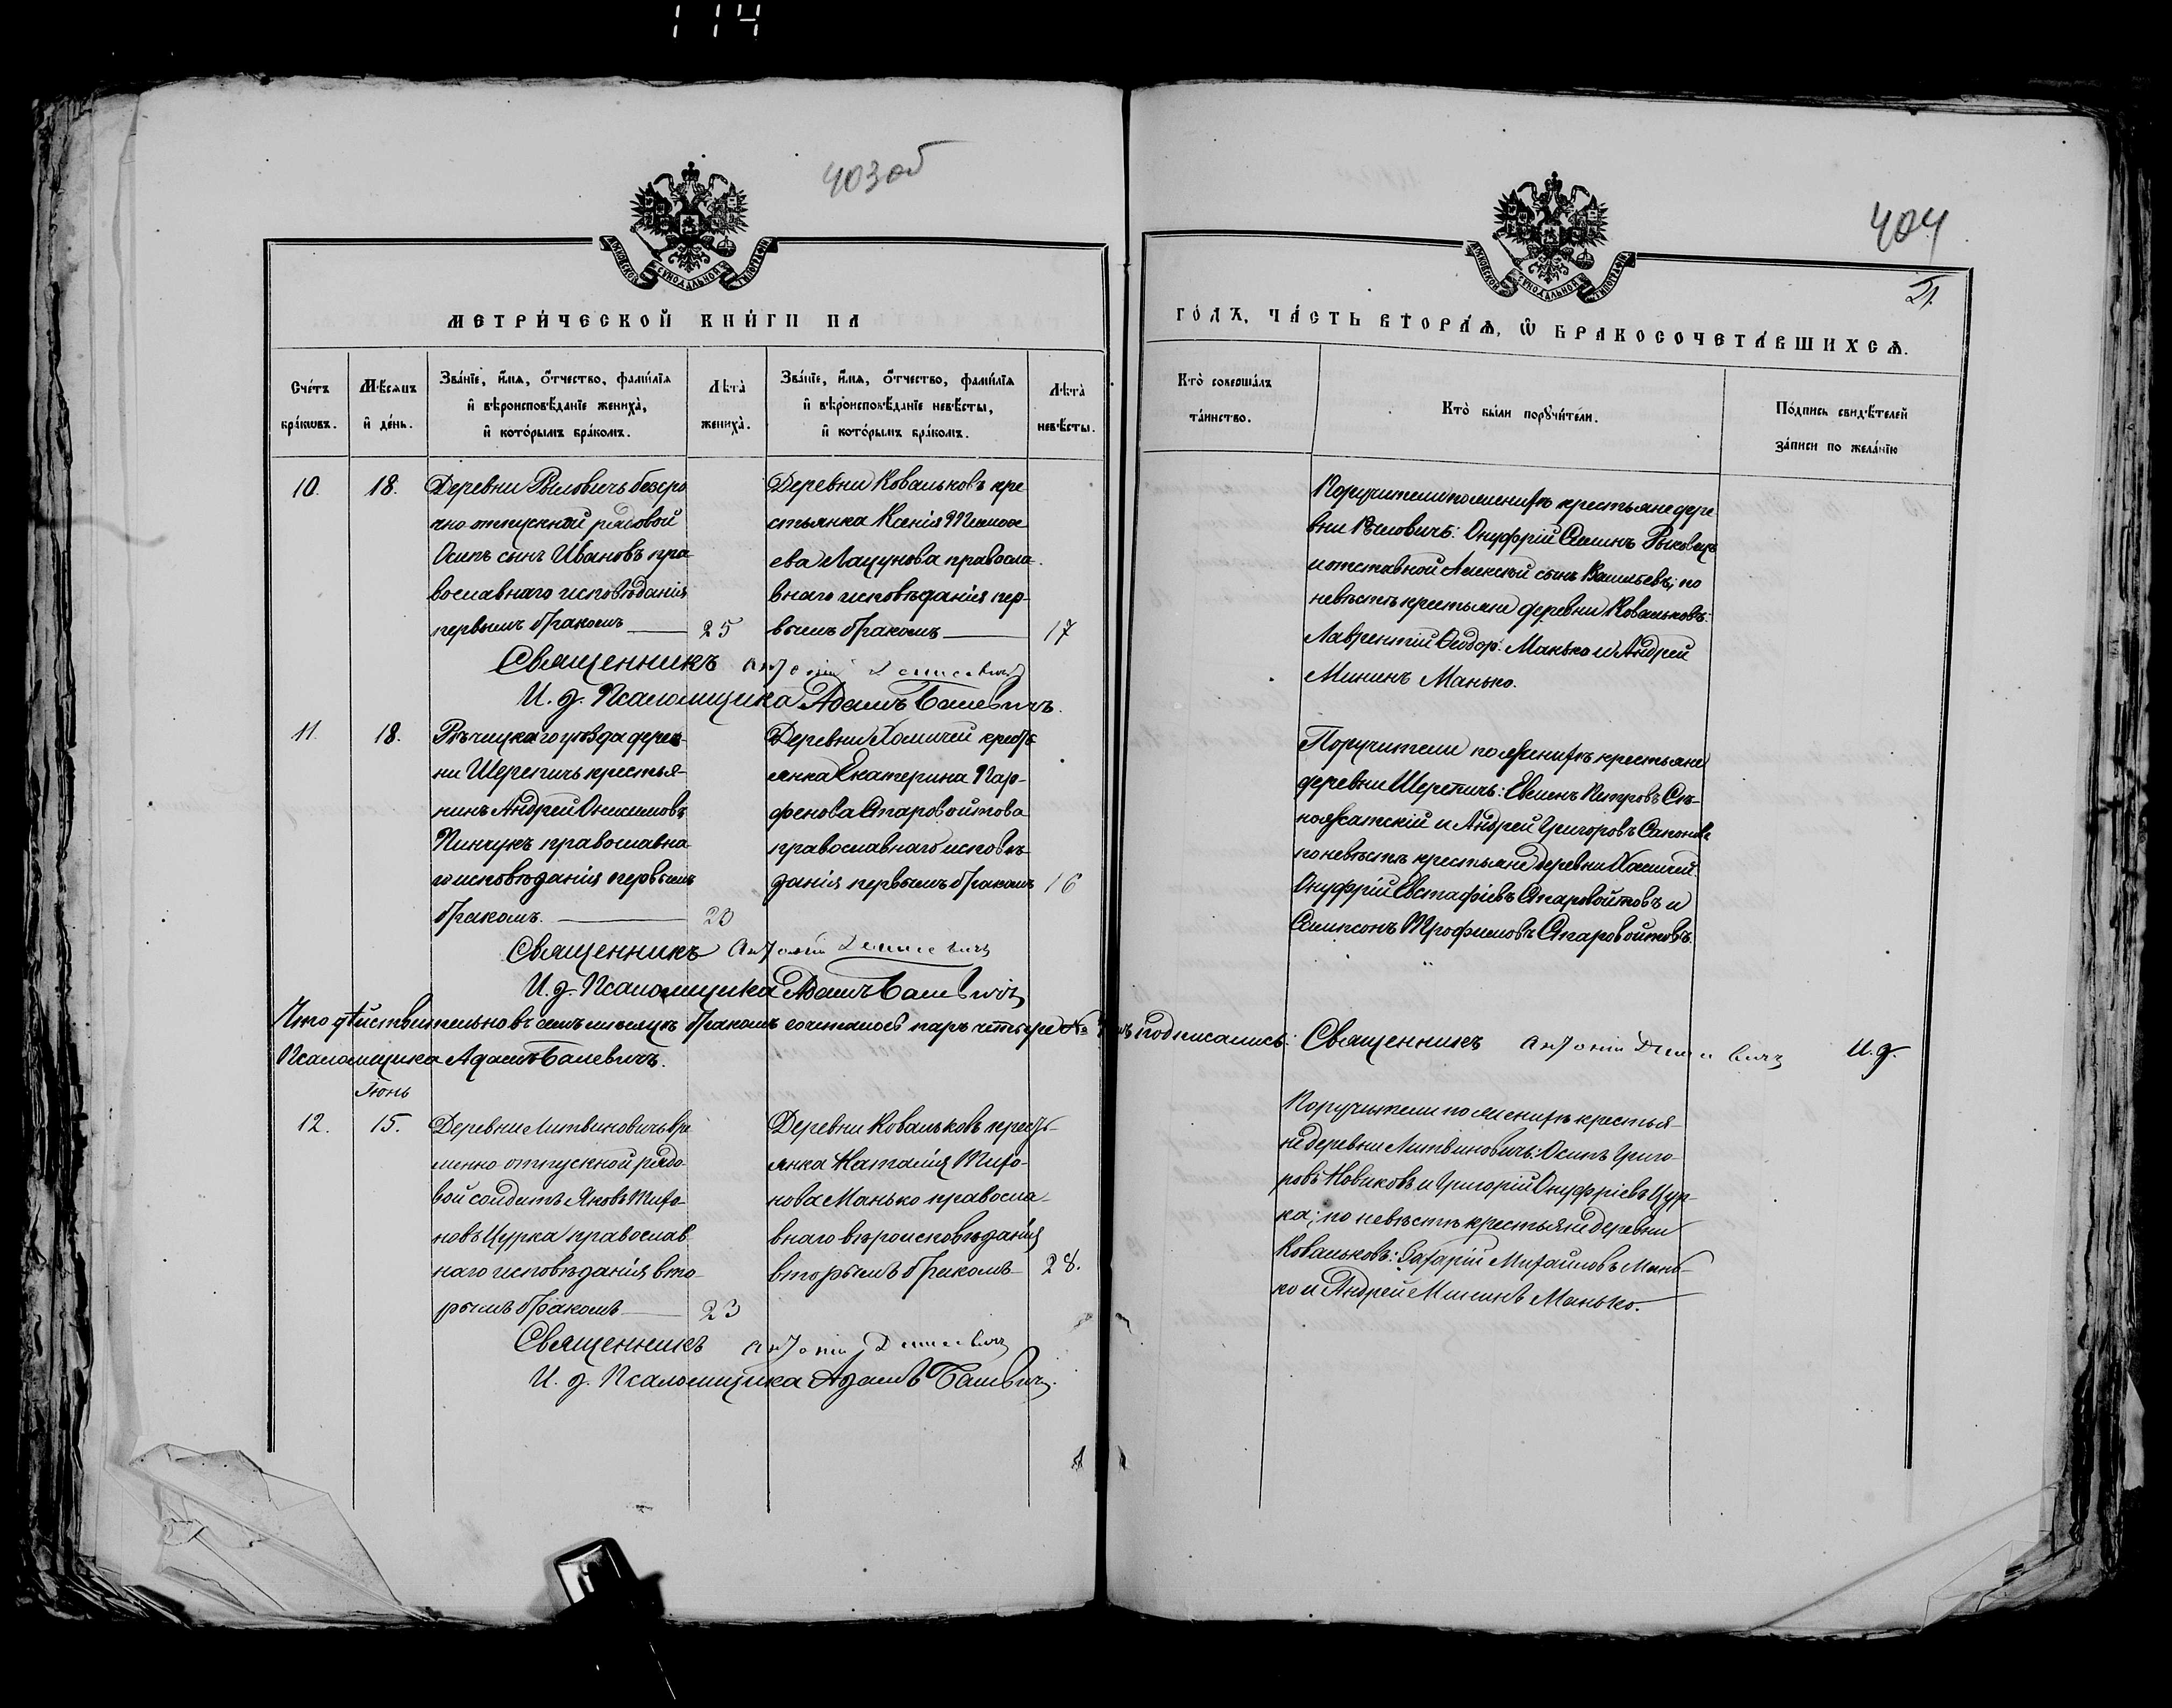 114
403об
404
21.
МЕТРИ́ЧЕСКОЙ КНИ́ГИ НА
ГО́ДЪ, ЧА́СТЬ ВТОРА́Ѧ, Ѽ БРАКОСОЧЕТА́ВШИХСѦ.
Сче́тъ бра́кѡвъ.
Мѣсѧцъ и҆ де́нь.
Зва́нїе, и҆́мѧ, ѻ҆́тчество, фамилїѧ
и҆ вѣроисповѣ́данїе жениха̀,
и҆ кото́рымъ бра́комъ.
Лѣта̀ жениха̀.
Зва́нїе, и҆́мѧ, ѻ҆́тчество, фамилїѧ
и҆ вѣроисповѣ́данїе невѣ́сты,
и҆ кото́рымъ бра́комъ.
Лѣта̀ невѣ́сты.
Кто̀ соверша́лъ
та́инство.
Кто̀ бы́ли порꙋчи́тели.
По́дпись свидѣ́телей
за́писи по жела́нїю
10.
18.
Деревни Рыловичъ безсро
чно отпускной рядовой
Осипъ сынъ Ивановъ пра
вославнаго исповѣданія
первымъ бракомъ
25
Деревни Ковальковъ кре
стьянка Ксенія Тимоѳе
ева Лацунова правосла-
внаго исповѣданія пер-
вымъ бракомъ
17
Поручители по женихѣ крестьяне дере
вни Рыловичъ: Онуфрій Саминъ
и отставной Алексѣй сынъ Васильевъ; по
невѣстѣ крестьяне деревни Ковальковъ:
Лаврентій Ѳеодор. Манько и Андрей
Мининъ Манько.
Священникъ Антоній
И. д. Псаломщика Адамъ Балевичъ.
11.
18.
Рѣчицкаго уѣзда дерев-
ни Шерепичъ крестья-
нинъ Андрей Онисимовъ
Пинчукъ православна
го исповѣданія первымъ
бракомъ.
20
Деревни Хомичей крестъ
янка Екатерина Пар-
фенова Старовойтова
православнаго исповѣ-
данія первымъ бракомъ
16
Поручители по женихѣ крестьяне
деревни Шерепичъ: Евменъ Петровъ Сѣ-
ножатскій и Андрей Григоровъ
по невѣстѣ крестьяне деревни Хомичей
Онуфрій Евстафіевъ Старовойтовъ и
Самисонъ Трофимовъ Старовойтовъ.
Священникъ Антоній
И. д. Псаломщика Адамъ Балевичъ
Что дѣйствительно въ семъ мѣсяцѣ бракомъ сочеталось паръ четыре № подписались: Священникъ Антоній И. д.
Псаломщика Адамъ Балевичъ.
Іюнь
12.
15.
Деревни Литвиновичъ вре
менно отпускной рядо-
вой солдатъ Яковъ Михо-
новъ Цурка православ
наго исповѣданія вто-
рымъ бракомъ
23
Деревни Ковальковъ крестъ-
янка Наталія Михо-
нова Манько правосла-
внаго вѣроисповѣданія
вторымъ бракомъ
28.
Поручители по женихѣ крестья-
не деревни Литвиновичъ: Осипъ Григо-
ровъ Новиковъ и Григорій Онуфріевъ Цур-
ка; по невѣстѣ крестьяне деревни
Ковальковъ: Захарій Михайловъ Мань-
ко и Андрей Мининъ Манько.
Священникъ Антоній
И. д. Псаломщика Адамъ Балевичъ.